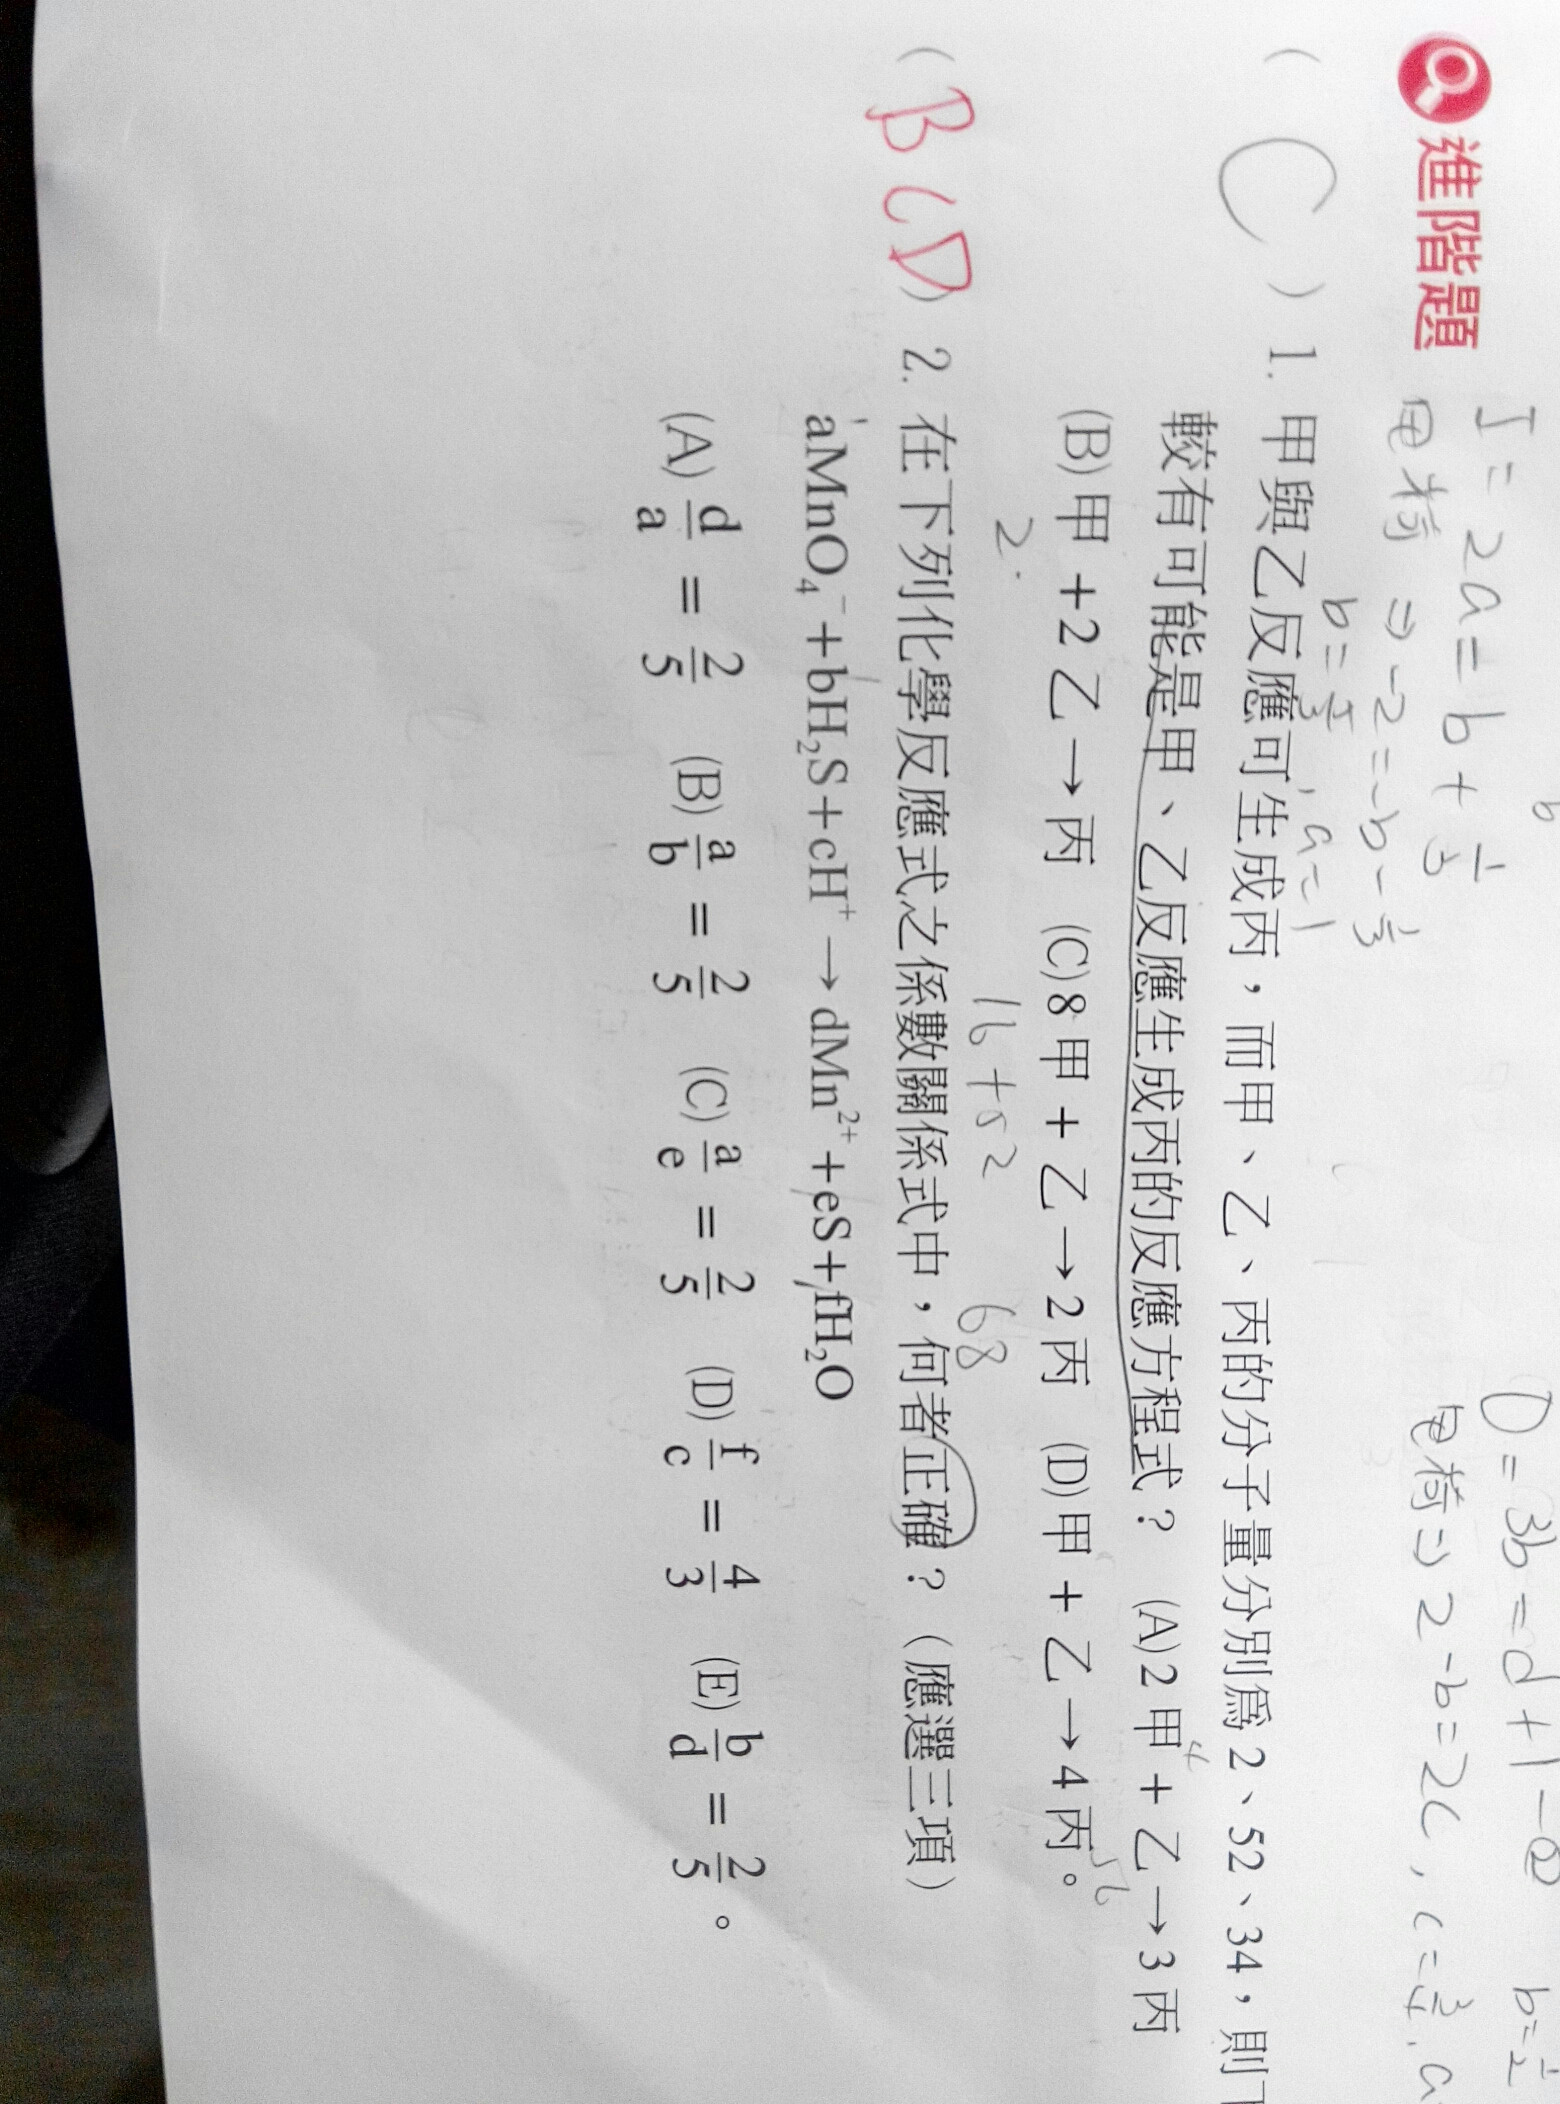 I = 2a = b + 1/3
電荷 ⇒ -2 = -b - 1/3
b = 5/3, a = 1
b
D = 3b = d + 1 -
電荷 ⇒ 2 - b = 2c, c = 3/4, a
b = 1/2
進階題
( C ) 1. 甲與乙反應可生成丙，而甲、乙、丙的分子量分別為 2、52、34，則下
較有可能是甲、乙反應生成丙的反應方程式？ (A) 2 甲 + 乙 → 3 丙
4
(B) 甲 + 2 乙 → 丙 (C) 8 甲 + 乙 → 2 丙 (D) 甲 + 乙 → 4 丙。
2. 16 + 52 68
( BCD ) 2. 在下列化學反應式之係數關係式中，何者正確？（應選三項）
aMnO₄⁻ + bH₂S + cH⁺ → dMn²⁺ + eS + fH₂O
(A) d/a = 2/5 (B) a/b = 2/5 (C) a/e = 2/5 (D) f/c = 4/3 (E) b/d = 2/5。